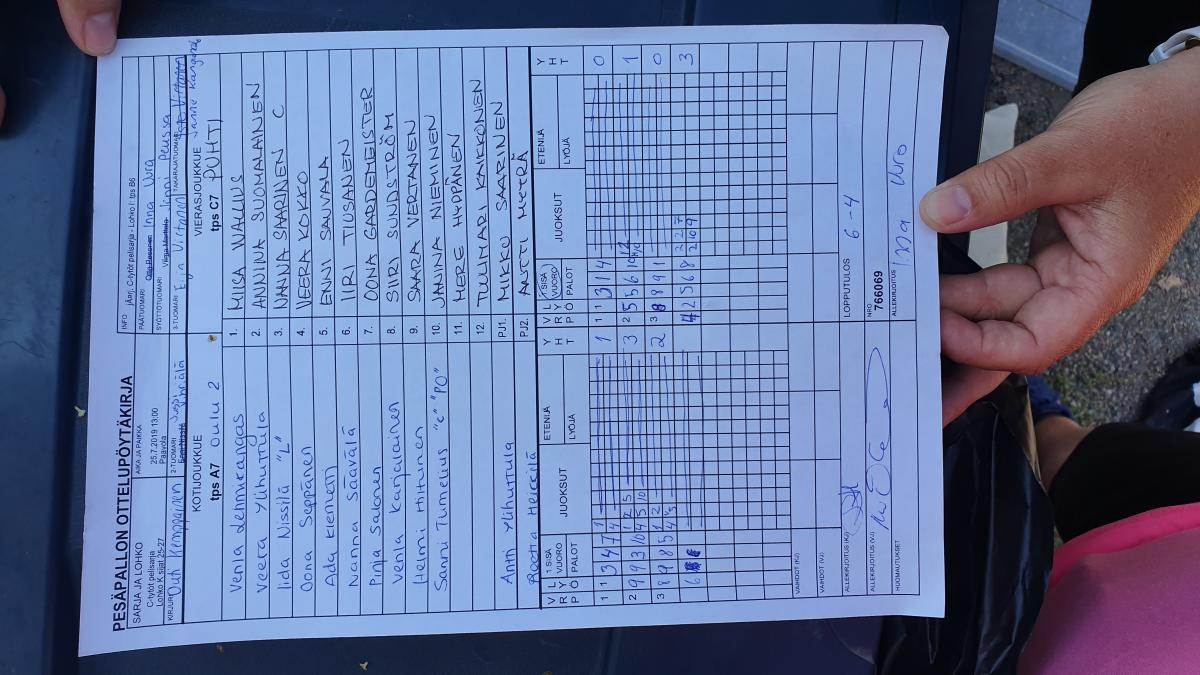 PESÄPALLON OTTELUPÖYTÄKIRJA
SARJA JA LOHKO
C-tytöt pelisarja
Lohko K sijat 25-27
AIKA JA PAIKKA
25.7.2019 13:00
Paavola
INFO jÄarj. C-tytöt pelisarja - Lohko I: tps B6
PÄÄTUOMARI Inna Uura
SYÖTTÖTUOMARI Jenni Peussa
KIRJURI Outi Kemppainen
2-TUOMARI Jussi Vihriälä
3-TUOMARI Eija Virtanen
TAKARAJATUOMARI
Janne Kangas
KOTIJOUKKUE
tps A7 OULU 2
VIERASJOUKKUE
tps C7 PUHTI
Venla Lehmikangas 1. MIISA WALLIUS
Veera Ylihuttula 2. ANNIINA SUOMALAINEN
Iida Nissilä "L" 3. NANNA SAARINEN C
Oona Seppänen 4. VEERA KOKKO
Ada Kiernan 5. ENNI SAUVALA
Nanna Säävälä 6. IIRI TIUSANEN
Pinja Salonen 7. OONA GARDEMEISTER
Venla Karjalainen 8. SIIRI SUNDSTRÖM
Helmi Hiltunen 9. SAARA VERTANEN
Sanni Tumelius "c" "PO" 10. JANINA NIEMINEN
11. MERE HYPPÄNEN
12. TUULIMARI KAIKKONEN
Antti Ylihuttula PJ1. MIKKO SAARINEN
Rootra Heikkilä PJ2. ANTTI MYTRÄ
VRP LYÖ I SISÄVUORO PALOT JUOKSUT ETENIJÄ LYÖJÄ YHT
VRP LYÖ I SISÄVUORO PALOT JUOKSUT ETENIJÄ LYÖJÄ YHT
1 1 3 4 7 4 1 1 1 3 1 4 0
2 9 9 3 10 3 2 5 5 6 1
3 8 9 8 5 2 3 8 8 9 1 0
6 4 2 5 6 8 3
VAIHDOT (KJ)
VAIHDOT (VJ)
ALLEKIRJOITUS (KJ)
LOPPUTULOS 6-4
ALLEKIRJOITUS (VJ)
NRO
766069
HUOMAUTUKSET
ALLEKIRJOITUS Inna Uuro